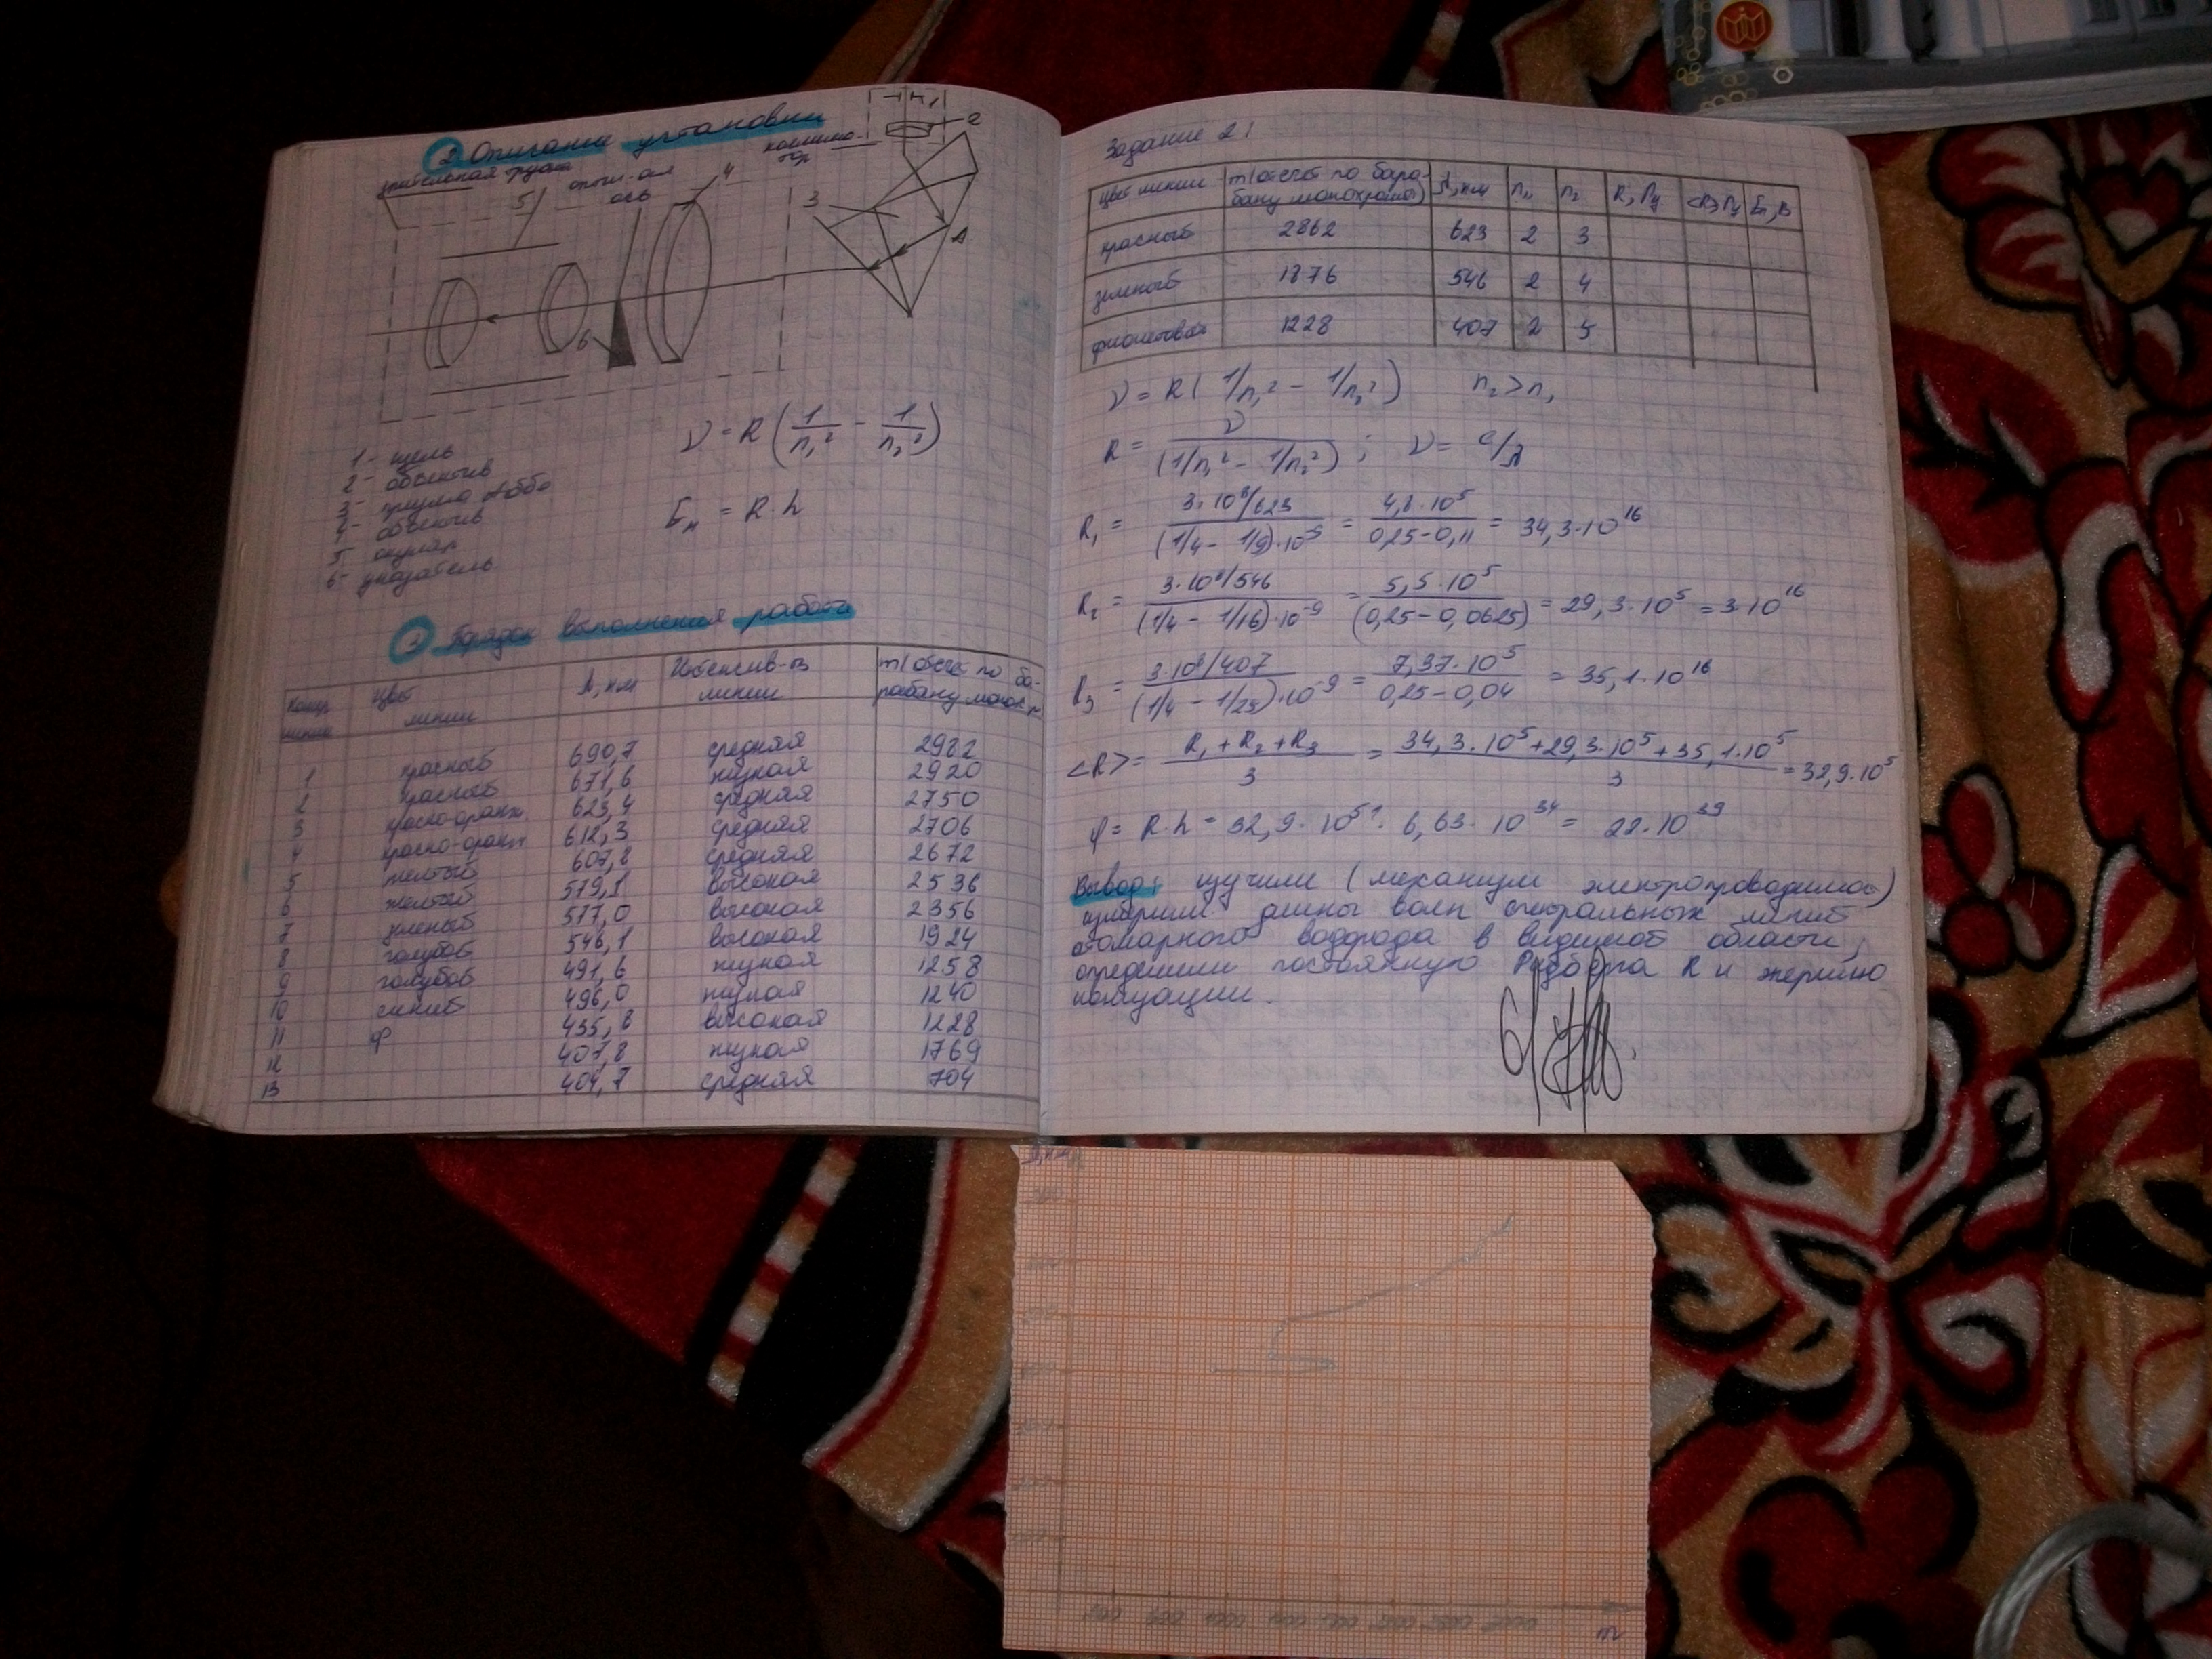 2. Описание установки
зрительная труба
оптич-ая
ось
коллима-
тор
5
4
3
2
6
1- щель
2- объектив
3- призма Аббо
4- объектив
5- окуляр
6- указатель
ν = R (1/n₁² − 1/n₂²)
Eн = R·h
3 Порядок выполнения работы
Номер линии Цвет линии λ, нм Интенсив-ть линии m (отсчет по ба-рабану монохр
1 красный 690,7 средняя 2982
2 красный 671,6 низкая 2920
3 красно-оранж. 623,4 средняя 2750
4 красно-оранж 612,3 средняя 2706
5 желтый 607,2 средняя 2672
6 желтый 579,1 высокая 2536
7 зеленый 577,0 высокая 2356
8 голубой 546,1 высокая 1924
9 голубой 491,6 низкая 1258
10 синий 496,0 низкая 1240
11 ф 435,8 высокая 1228
12 407,8 низкая 1769
13 404,7 средняя 704
Задание 2!
Цвет линии m (отсчет по бара-бану монохромат) λ, нм n₁ n₂ R, Гц <R>, Гц Eн, В
красный 2862 623 2 3
зеленый 1876 546 2 4
фиолетовая 1228 407 2 5
ν = R(1/n₁² − 1/n₂²) n₂ > n₁
R = ν/(1/n₁² − 1/n₂²) ; ν = c/λ
R₁ = 3·10⁸/623 / (1/4 − 1/9)·10⁻⁹ = 4,8·10⁵ / 0,25−0,11 = 34,3·10¹⁶
R₂ = 3·10⁸/546 / (1/4 − 1/16)·10⁻⁹ = 5,5·10⁵ / (0,25−0,0625) = 29,3·10⁵ = 3·10¹⁶
R₃ = 3·10⁸/407 / (1/4 − 1/25)·10⁻⁹ = 7,37·10⁵ / 0,25−0,04 = 35,1·10¹⁶
<R> = R₁ + R₂ + R₃ / 3 = 34,3·10⁵+29,3·10⁵+35,1·10⁵ / 3 = 32,9·10⁵
φ = R·h = 32,9·10⁵ · 6,63·10³⁴ = 22·10³⁹
Вывод: изучили (механизм электропроводимос)
измерили длины волн спектральных линий
атомарного водорода в видимой области,
определили постоянную Ридберга R и энергию
ионизации.
λ, нм
m